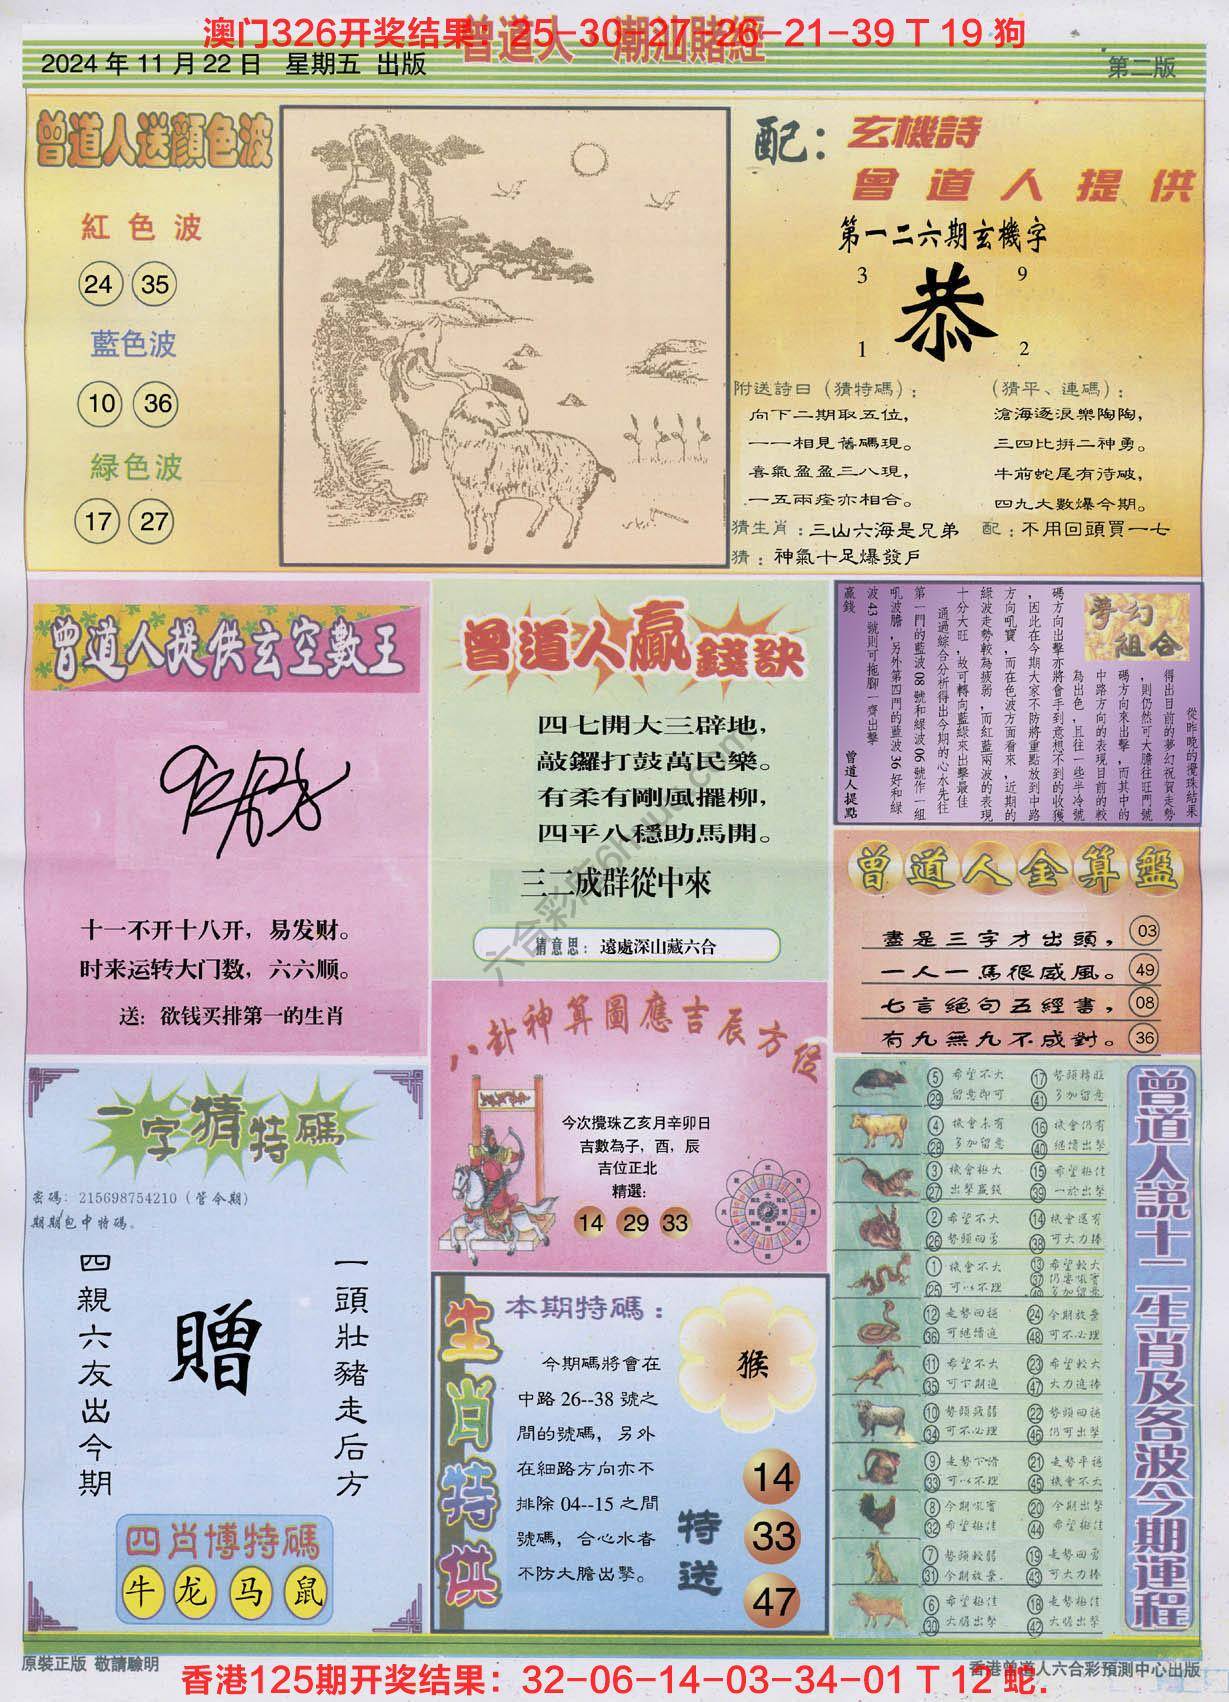 澳门326开奖结果：25-30-27-26-21-39 T 19 狗
曾道人 潮汕賭經
2024 年 11 月 22 日 星期五 出版
第二版
曾道人送顏色波
紅色波
24 35
藍色波
10 36
綠色波
17 27
配：玄機詩
曾道人提供
第一二六期玄機字
3 9
恭
1 2
附送詩曰（猜特碼）：
向下二期取五位，
一一相見舊碼現。
喜氣盈盈三八現，
一五兩痊亦相合。
（猜平、連碼）：
滄海逐浪樂陶陶，
三四比拼二神勇。
牛前蛇尾有待破，
四九大數爆今期。
猜生肖：三山六海是兄弟 配：不用回頭買一七
猜：神氣十足爆發戶
曾道人提供玄空數王
十一不开十八开，易发财。
时来运转大门数，六六顺。
送：欲钱买排第一的生肖
曾道人贏錢訣
四七開大三辟地，
敲鑼打鼓萬民樂。
有柔有剛風擺柳，
四平八穩助馬開。
三二成群從中來
猜意思：遠處深山藏六合
夢幻組合
從昨晚的攪珠結果
得出目前的夢幻祝賀走勢
，則仍然可大膽往旺門號
碼方向來出擊，而其中的
中路方向的表現目前的較
為出色，且往一些半冷號
碼方向出擊亦將會手到意想不到的收獲
，因此在今期大家不防將重點放到中路
方向吼寶，而在色波方面看來，近期的
綠波走勢較為疲弱，而紅藍兩波的表現
十分大旺，故可轉向藍綠來出擊最佳
通過綜合分析得出今期的心水先往
第一門的藍波08號和綠波06號作一組
吼波膽，另外第四門的藍波36好和綠
波43號則可拖腳一齊出擊
贏錢
曾道人提點
曾道人金算盤
盡是三字才出頭， 03
一人一馬很威風。 49
七言絕句五經書， 08
有九無九不成對。 36
八卦神算圖應吉辰方位
今次攪珠乙亥月辛卯日
吉數為子，酉，辰
吉位正北
精選：
14 29 33
一字猜特碼
密碼：215698754210（管今期）
期期包中特碼。
一頭壯豬走后方
贈
四親六友出今期
四肖博特碼
牛 龙 马 鼠
生肖特供
本期特碼：
今期碼將會在
中路 26--38 號之
間的號碼，另外
在細路方向亦不
排除 04--15 之間
號碼，合心水者
不防大膽出擊。
猴
特送
14
33
47
曾道人說十二生肖及各波今期運程
5 希望不大 17 勢頭轉旺
29 留意即可 41 多加留意
4 機會未有 16 機會仍有
28 多加留意 40 繼續出擊
3 機會極大 15 希望極佳
27 出擊贏錢 39 一於出擊
2 希望不大 14 機會還有
26 勢頭回勇 38 可大力捧
1 機會不大 13 希望較大
25 可以不理 37
12 走勢回穩 24 今期放棄
36 可繼續追 48 可不必理
11 希望不大 23 希望較大
35 可下期追 47 大力追捧
10 勢頭疲弱 22 勢頭回穩
34 可不必理 46 仍可出擊
9 走勢下滑 21 走勢平穩
33 可以不理 45 機會不大
8 今期吼寶 20 今期出擊
32 希望極佳 44 希望極佳
7 勢頭較弱 19 走勢回勇
31 今期放棄. 43 可大力捧
6 希望極佳 18 走勢極佳
30 大膽出擊 42 大膽出擊
六合彩库6hua.com
原裝正版 敬請驗明
香港曾道人六合彩預測中心出版
香港125期开奖结果：32-06-14-03-34-01 T 12 蛇.